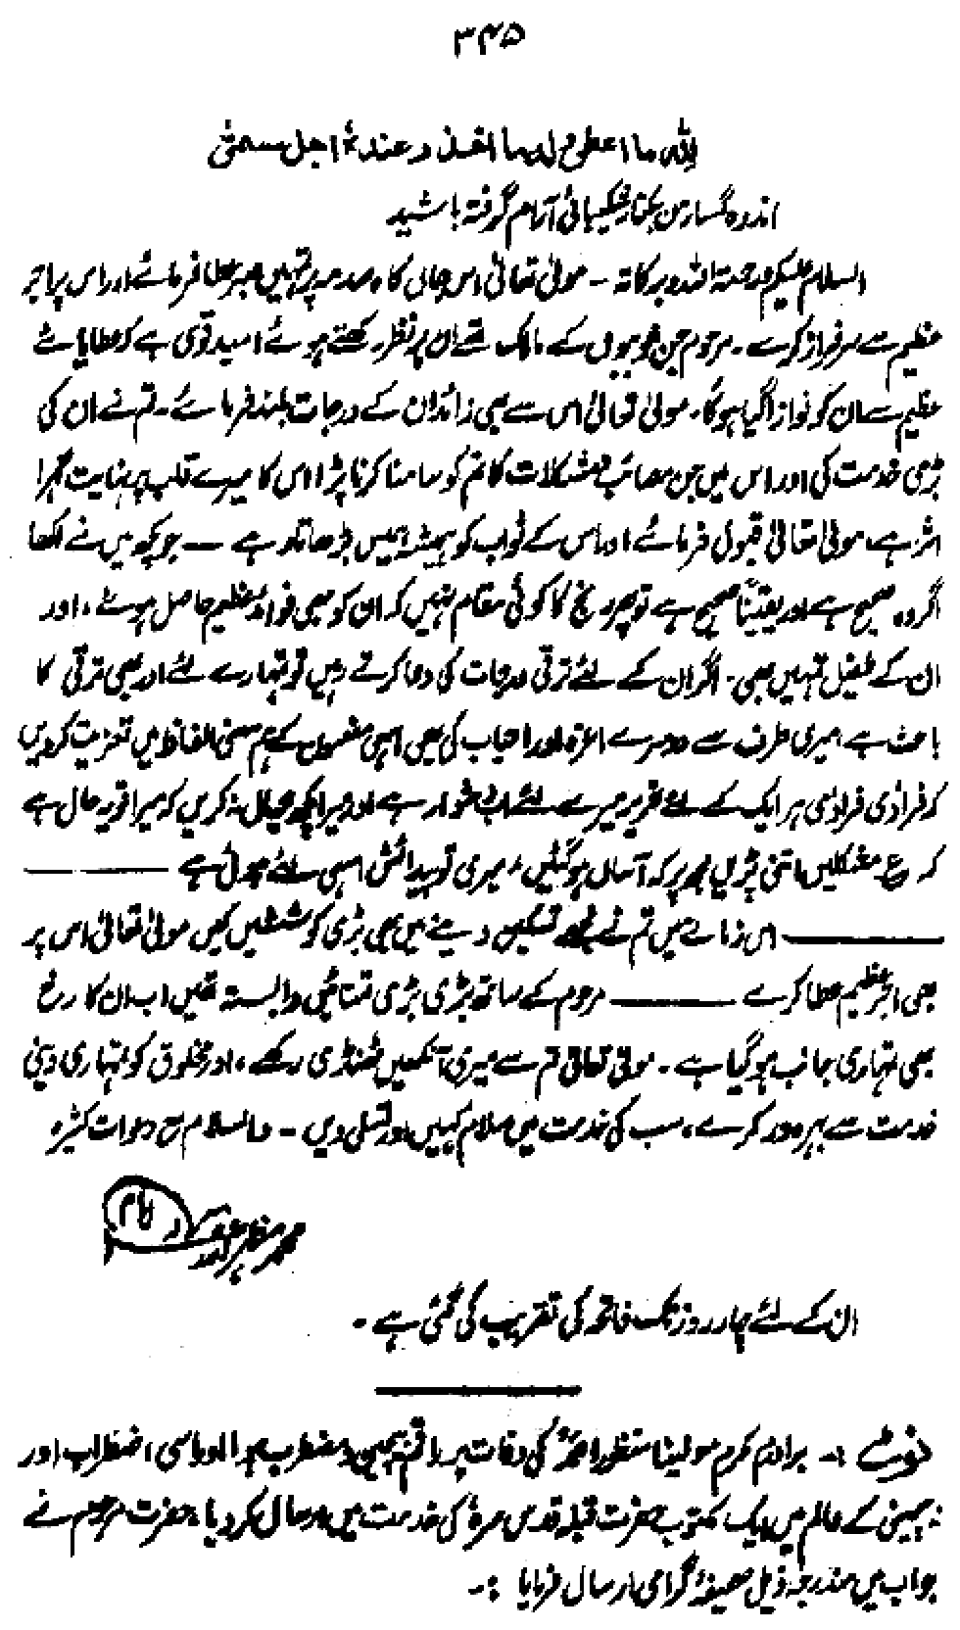 ۳۴۵
للہ ما اعطیٰ و لہ ما اخذ و عندہٗ اجل مسمّیٰ
اندوہ گسار من بکنار شکیبائی آرام گرفتہ باشید
السلام علیکم ورحمۃ اللہ وبرکاتہ ۔ مولیٰ تعالیٰ اس جانی کاہ صدمہ پر تمہیں صبر عطا فرمائے اور اس پر اجر
عظیم سے سرفراز کرے ۔ مرحوم جن خوبیوں کے مالک تھے ان پر نظر رکھتے ہوئے امید قوی ہے کہ عطایائے
عظیم سے ان کو نوازا گیا ہوگا ۔ مولیٰ تعالیٰ اس سے بھی زائد ان کے درجات بلند فرمائے ۔ تم نے ان کی
بڑی خدمت کی اور اس میں جن مصائب و مشکلات کا تم کو سامنا کرنا پڑا اس کا میرے قلب پر نہایت گہرا
اثر ہے، مولیٰ تعالیٰ قبول فرمائے اور اس کے ثواب کو ہمیشہ ہمیں بڑھاتا رہے — جو کچھ میں نے لکھا
اگر وہ صحیح ہے اور یقیناً صحیح ہے تو پھر رنج کا کوئی مقام نہیں کہ ان کو بھی فوائد عظیم حاصل ہوئے، اور
ان کے طفیل تمہیں بھی ۔ اگر ان کے لئے ترقی درجات کی دعا کرتے رہیں تو تمہارے لئے اور بھی ترقی کا
باعث ہے، میری طرف سے دوسرے اعزہ اور احباب کی بھی اسی مضمون کے ہم معنی الفاظ میں تعزیت کر دیں
کہ فرادی فرادی ہر ایک کے لئے تحریر میرے لئے اب دشوار ہے اور میرا کچھ خیال نہ کریں کہ میرا تو یہ حال ہے
کہ ع مشکلیں اتنی پڑیں مجھ پر کہ آساں ہوگئیں، میری تو پیدائش اسی لئے ہوئی ہے ———
——— اس زمانے میں تم نے مجھے تسکین دینے میں بھی بڑی کوششیں کیں مولیٰ تعالیٰ اس پر
بھی اجر عظیم عطا کرے ——— مرحوم کے ساتھ بڑی بڑی تمنائیں وابستہ تھیں اب ان کا رخ
بھی تمہاری جانب ہو گیا ہے ۔ مولیٰ تعالیٰ تم سے میری آنکھیں ٹھنڈی رکھے، اور مخلوق کو تمہاری دینی
خدمت سے بہرہ ور کرے، سب کی خدمت میں سلام کہیں اور تسلی دیں ۔ والسلام مع دعوات کثیرہ
محمد مظہر اللہ
ان کے لئے چار روز تک فاتحہ کی تقریب کی گئی ہے ۔
نوٹ :۔ برادرم مکرم مولینا منظور احمدؒ کی وفات پر راقم بیحد مضطرب ہوا اور اسی اضطراب اور
بے چینی کے عالم میں ایک مکتوب حضرت قبلہ قدس سرہٗ کی خدمت میں ارسال کر دیا، حضرت مرحوم نے
جواب میں مندرجہ ذیل صحیفۂ گرامی ارسال فرمایا :۔